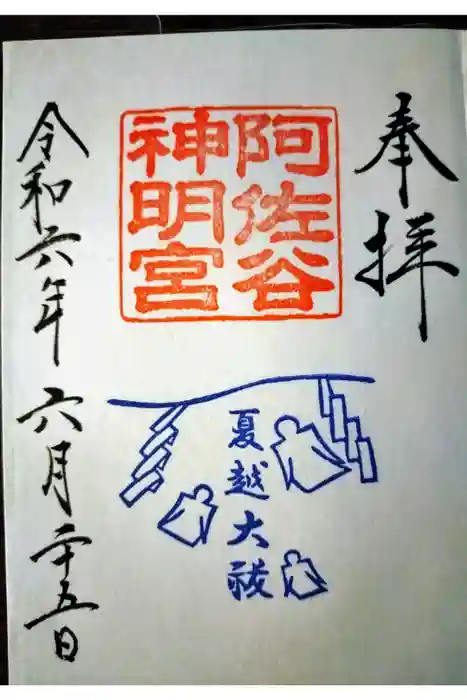 奉拝
阿佐谷
神明宮
夏越大祓
令和六年六月二十五日